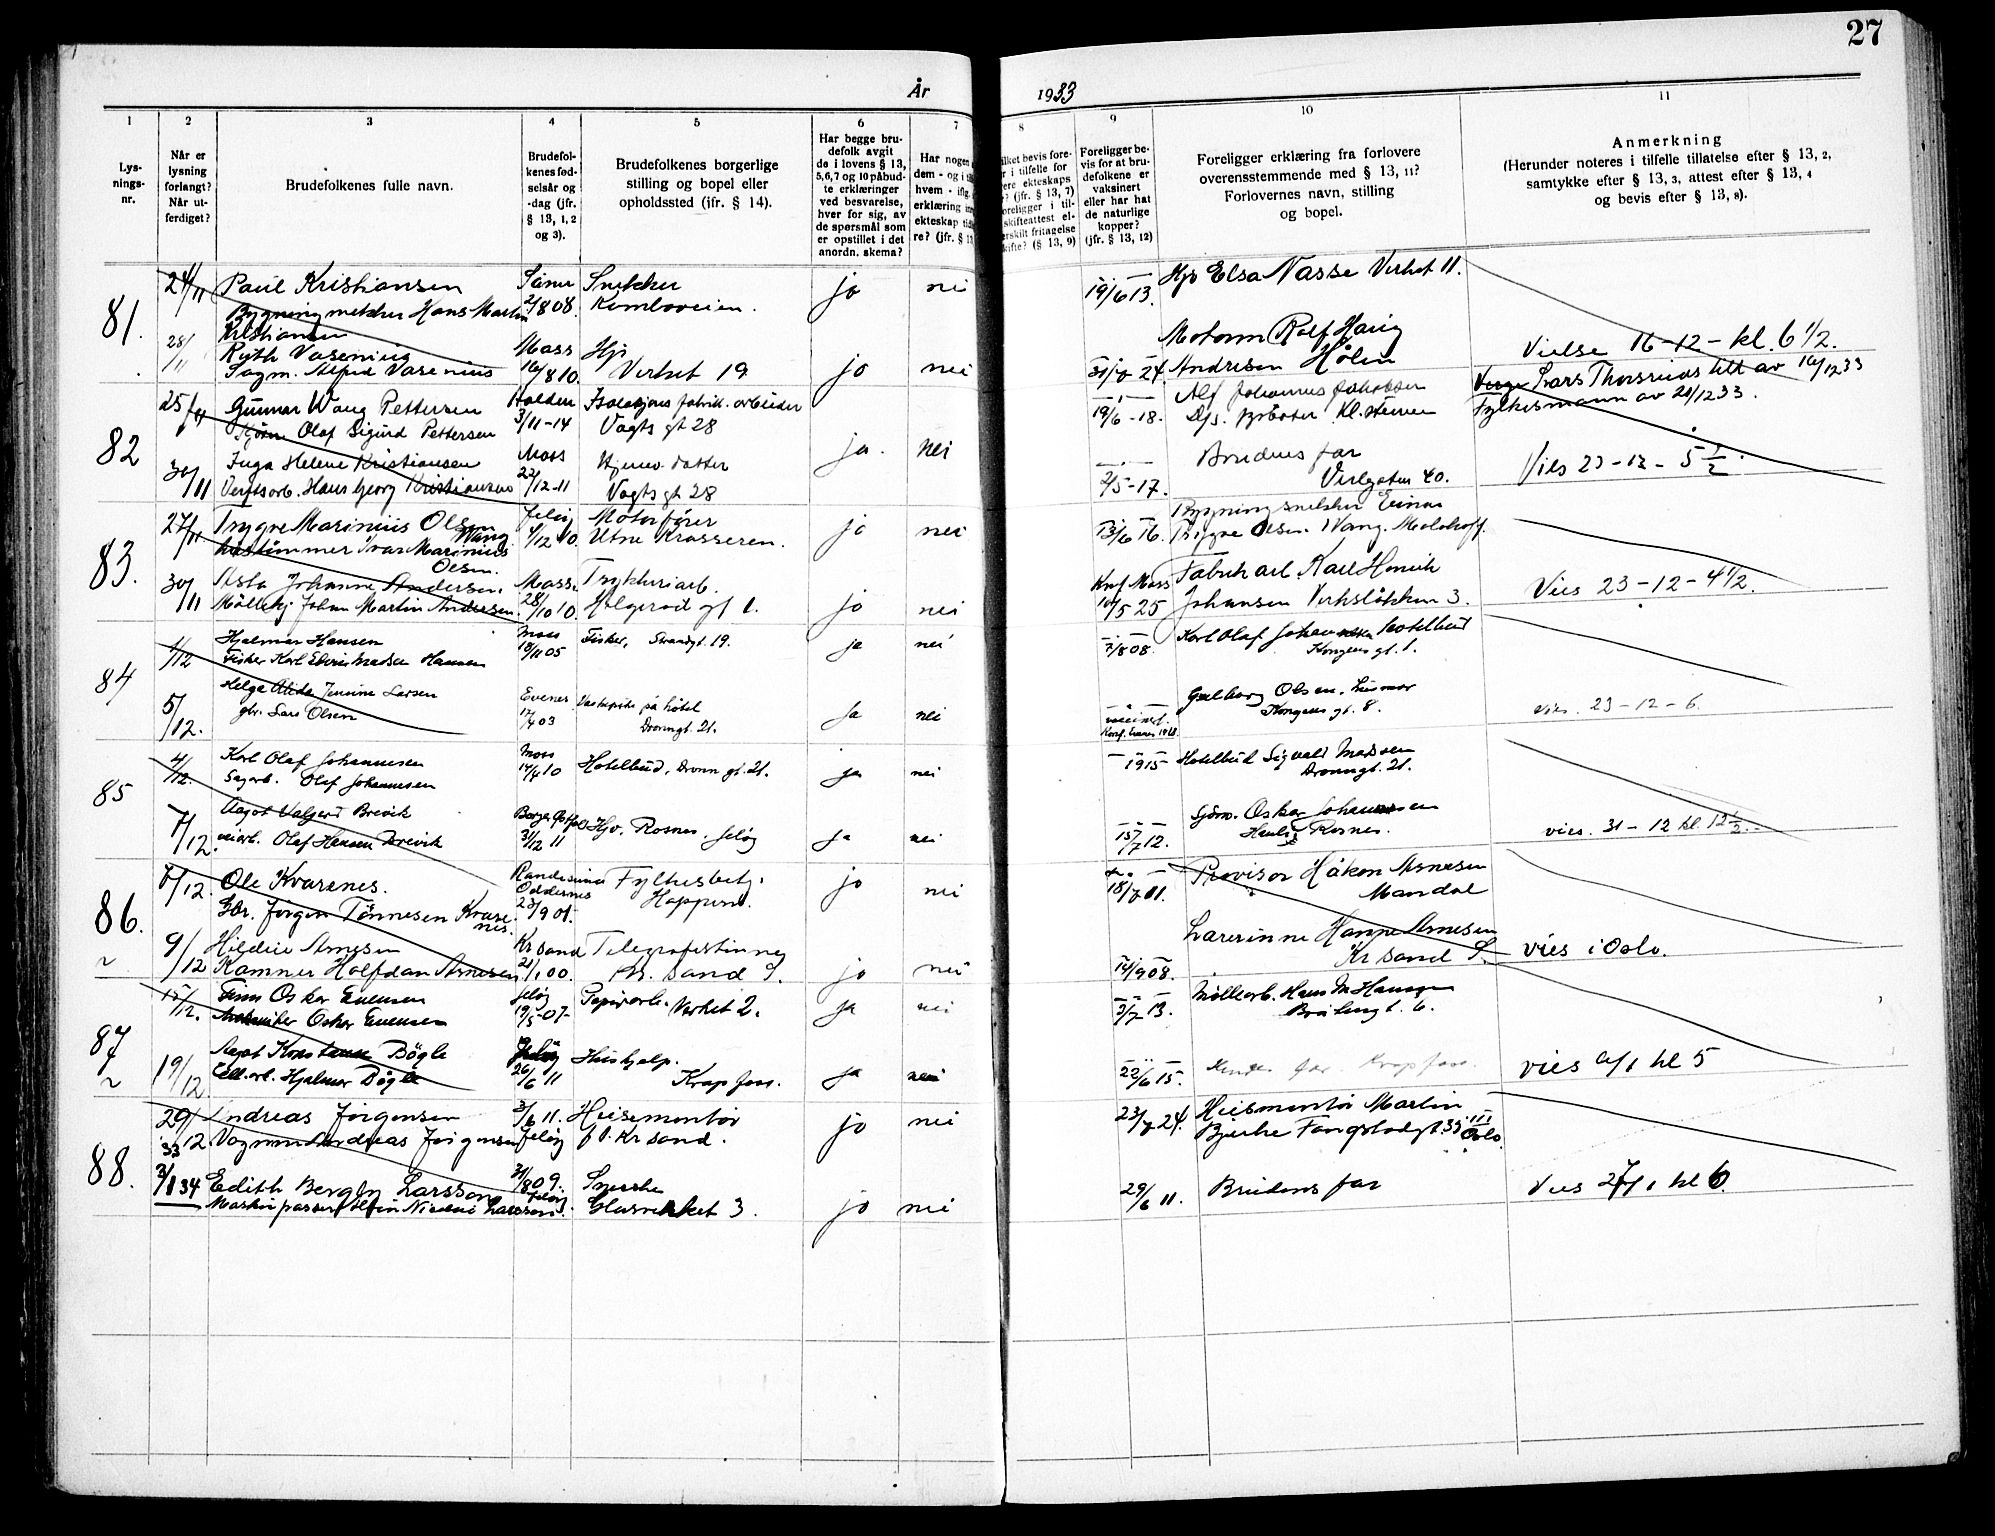 27
År 1933
1 2 3 4 5 6 7 8 9 10 11
Lys-
nings-
nr.
Når er
lysning
forlangt?
Når ut-
ferdiget?
Brudefolkenes fulle navn.
Brudefol-
kenes fød-
selsår og
-dag (jfr.
§ 13, 1, 2
og 3).
Brudefolkenes borgerlige
stilling og bopel eller
opholdssted (jfr. § 14).
Har begge bru-
defolk avgit
de i lovens § 13,
5,6,7 og 10 påbud-
te erklæringer
ved besvarelse,
hver for sig, av
de spørsmål som
er opstillet i det
anordn. skema?
Har nogen
dem - og i
hvem - ifg.
erklæring
ekteskap tid
re? (jfr. § 1
ilket bevis fore-
r i tilfelle for
ere ekteskaps
? (jfr. § 13, 7)
oreligger i til-
skifteattest el-
erskilt fritagelse
kifte? (§ 13, 9)
Foreligger be-
vis for at bru-
defolkene er
vaksinert
eller har hat
de naturlige
kopper?
(jfr. § 13, 12)
Foreligger erklæring fra forlovere
overensstemmende med § 13, 11?
Forlovernes navn, stilling
og bopel.
Anmerkning
(Herunder noteres i tilfelle tillatelse efter § 13, 2,
samtykke efter § 13, 3, attest efter § 13, 4
og bevis efter § 13, 8).
81. 24/11 Paul Kristiansen Såner Snekker jo nei 19/6 13. Hjv Elsa Nasse Verket 11.
Bygningsnekker Hans Martin 2/8 08. Kamboveien.
Kristiansen
28/11 Ruth Vasenius Moss Hjv
Sagm. Alfred Vasenius 16/8 10. Verket 19 jo nei 24. Andresen Hölen
Motorm Rolf Harry
Vielse 16-12- kl. 6 1/2.
82 25/11 Gunnar Wang Pettersen Halden Isolasjons fabrik. arbeider
Olaf Sigurd Pettersen 3/11-14 Vogts gt 28 ja. nei 19/6-18. Alf Johannes Jakobsen
Inga Helene Kristiansen Moss Hjemv. datter
30/11 Verftsarb. Hans Georg Kristiansen 22/12-11 Vogts gt 28 2/5-17. Brudens far
Verlegaten 40.
Lars Thorsrud till av 16/12 33
Fylkesmann av 21/12 33.
Vies 23-12-5 1/2
83. 27/11 Trygve Marinius Olsen Jeløy Motorfører jo nei 13/6 16. Bygningsnekker Einar
Wang.
Ivar Marinius 4/12 10. Utne Krosseren. Trygve Olsen. Wang. Molohoff.
Olsen.
30/11 Asta Johanne Andersen. Moss. Trykkeriarb. Konf Moss Fabrik arb. Karl Henrik
Möllebj Johan Martin Andersen. 28/10 10. Helgerød gt 1. jo nei 5 25 Johansen Verksløkken 3.
Vies 23-12-4 1/2.
84 1/12 Hjalmar Hansen Moss Fisker, Strandgt. 19. ja nei 7/8 08. Karl Olaf Johannesen Hotelbud
Fisker Karl Edvin Madsen Hansen 18/11 05 Kongens gt. 1.
5/12. Helga Alida Jensine Larsen Evenes på hôtel
gbr. Lars Olsen 17/4 03 Dronngt. 21. ja nei vaccinert. Gulborg Olsen. husmor
Kongens gt. 8.
vies. 23-12-6.
85 4/12. Karl Olaf Johannesen Moss Hotelbud, Dronn gt. 21. ja nei 1915 Hotelbud Sigvald Madsen
Sagarb. Olaf Johannesen 14/4 10 Dronngt. 21.
7/12. Aagot Valgerd Brevik Borge Østfold Hjv. Rosnes. Jeløy ja nei 15/7 12. Oskar Johannessen
veiarb. Olaf Hansen Brevik 31/12 11 Rosnes.
vies. 31-12 kl. 12 1/2.
86. 8/12 Ole Kvarenes. Randesund Fylkesbetj. jo nei 18/7 01. Provisor Håkon Arnesen
Oddernes Hoppern. Mandal
Gbr. Jørgen Tønnesen Kvare-
nes. 23/9 01.
9/12 Hildur Arnesen Kr sand Telegrafistinne Lærerinne Hanne Arnesen
Kæmner Halfdan Arnesen 21/1 00. Kr. sand S. jo nei 14/9 08. Kr sand S.
vies i Oslo.
87 15/12. Finn Oskar Evensen Jeløy Papirarb. Verket 2. ja nei 3/7 13. Møllearb. Hans M Hansen
Oskar Evensen 19/5-07- 6.
19/12. Aagot Konstanse Bøgle Jeløy Hushjelp.
Cell.arb. Hjalmar Bøgle 26/6 11 Krapfoss. ja nei 22/6 15. far Krapfoss.
vies 6/1 kl 5
88. 29/12 33 Andreas Jørgensen 3/6 11. Heisemontør jo nei 23/8 24. Heismontør Martin
Vognm Andreas Jørgensen Jeløy f t. Kr sand. Bjerke Fangstadgt. 33 III Oslo.
3/1 34 Edith Bergly Larsson 31/8 09. Syerske
Maskinpasser Nicolai Larsson. Jeløy Glassverket 3. jo nei 29/6 11. Brudens far
Vies 27/1 kl 6.